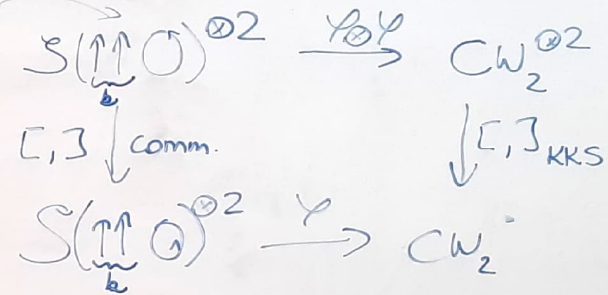 S(↑↑ O)^{⊗2} φ⊗φ → CW_2^{⊗2}
b
[,] ↓ comm. ↓ [,]_{KKS}
S(↑↑ O)^{⊗2} φ → CW_2
b